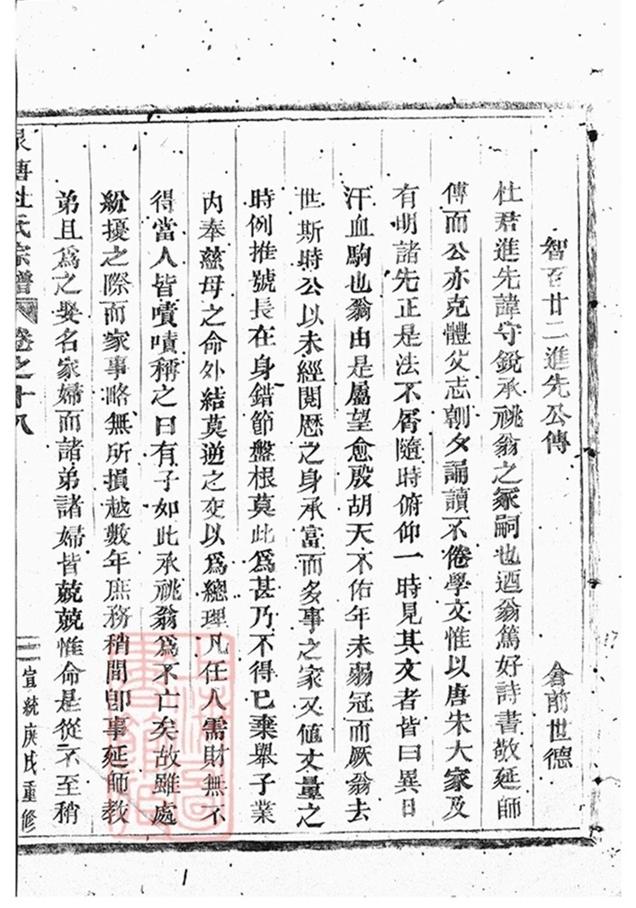 智百廿二進先公傳
倉前世德
杜君進先諱守銳承祧翁之冢嗣也迺翁篤好詩書敬延師
傅而公亦克體父志朝夕誦讀不倦學文惟以唐宋大家及
有明諸先正是法不屑隨時俯仰一時見其文者皆曰異日
汗血駒也翁由是屬望愈殷胡天不佑年未弱冠而厥翁去
世斯時公以未經閱歷之身承富而多事之家又值丈量之
時例推號長在身錯節盤根莫此為甚乃不得已棄舉子業
內奉慈母之命外結莫逆之交以為總理凡任人需財無不
得當人皆嘖嘖稱之曰有子如此承祧翁為不亡矣故雖處
紛擾之際而家事略無所損越數年庶務稍閒卽事延師教
弟且為之娶名家婦而諸弟諸婦皆兢兢惟命是從不至稍
塘杜氏宗譜 卷之十八
宣統庚戌重修